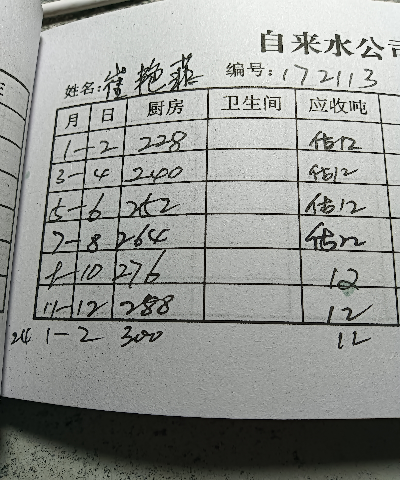 自来水公司
姓名: 崔艳菲 编号: 172113
月 日 厨房 卫生间 应收吨
1-2 228 估12
3-4 240 估12
5-6 252 估12
7-8 264 估22
9-10 276 12
11-12 288 12
24 1-2 300 12